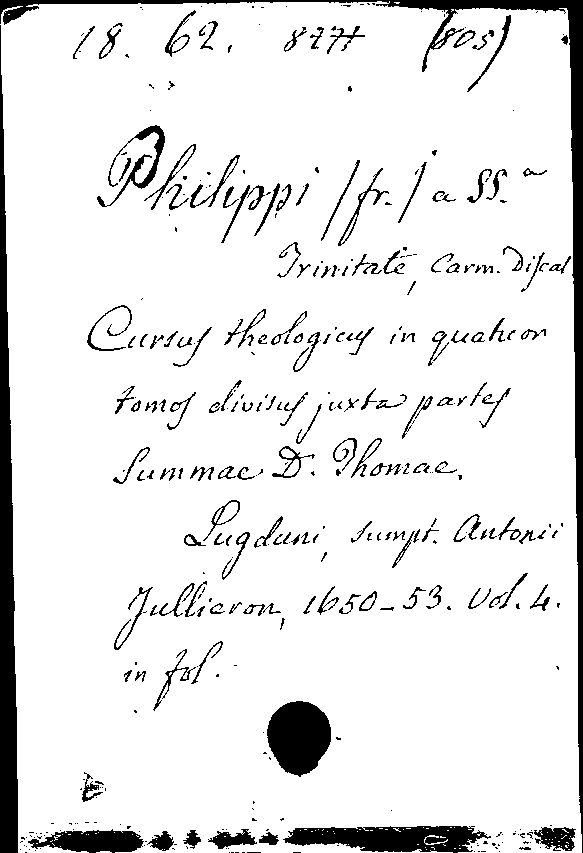 18. 62. 8771 (805)
Philippi /fr./ a SS.a
Trinitate, Carm. Discal.
Cursus theologicus in quatuor
tomos divisus juxta partes
Summae D. Thomae.
Lugduni, sumpt. Antonii
Jullieron, 1650-53. Vol. 4.
in fol.